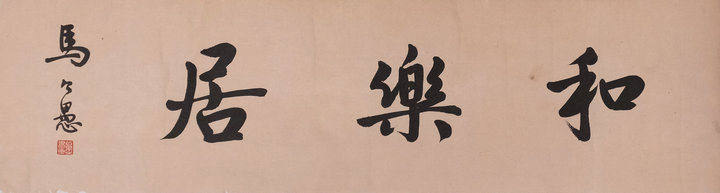 和樂居
馬公愚